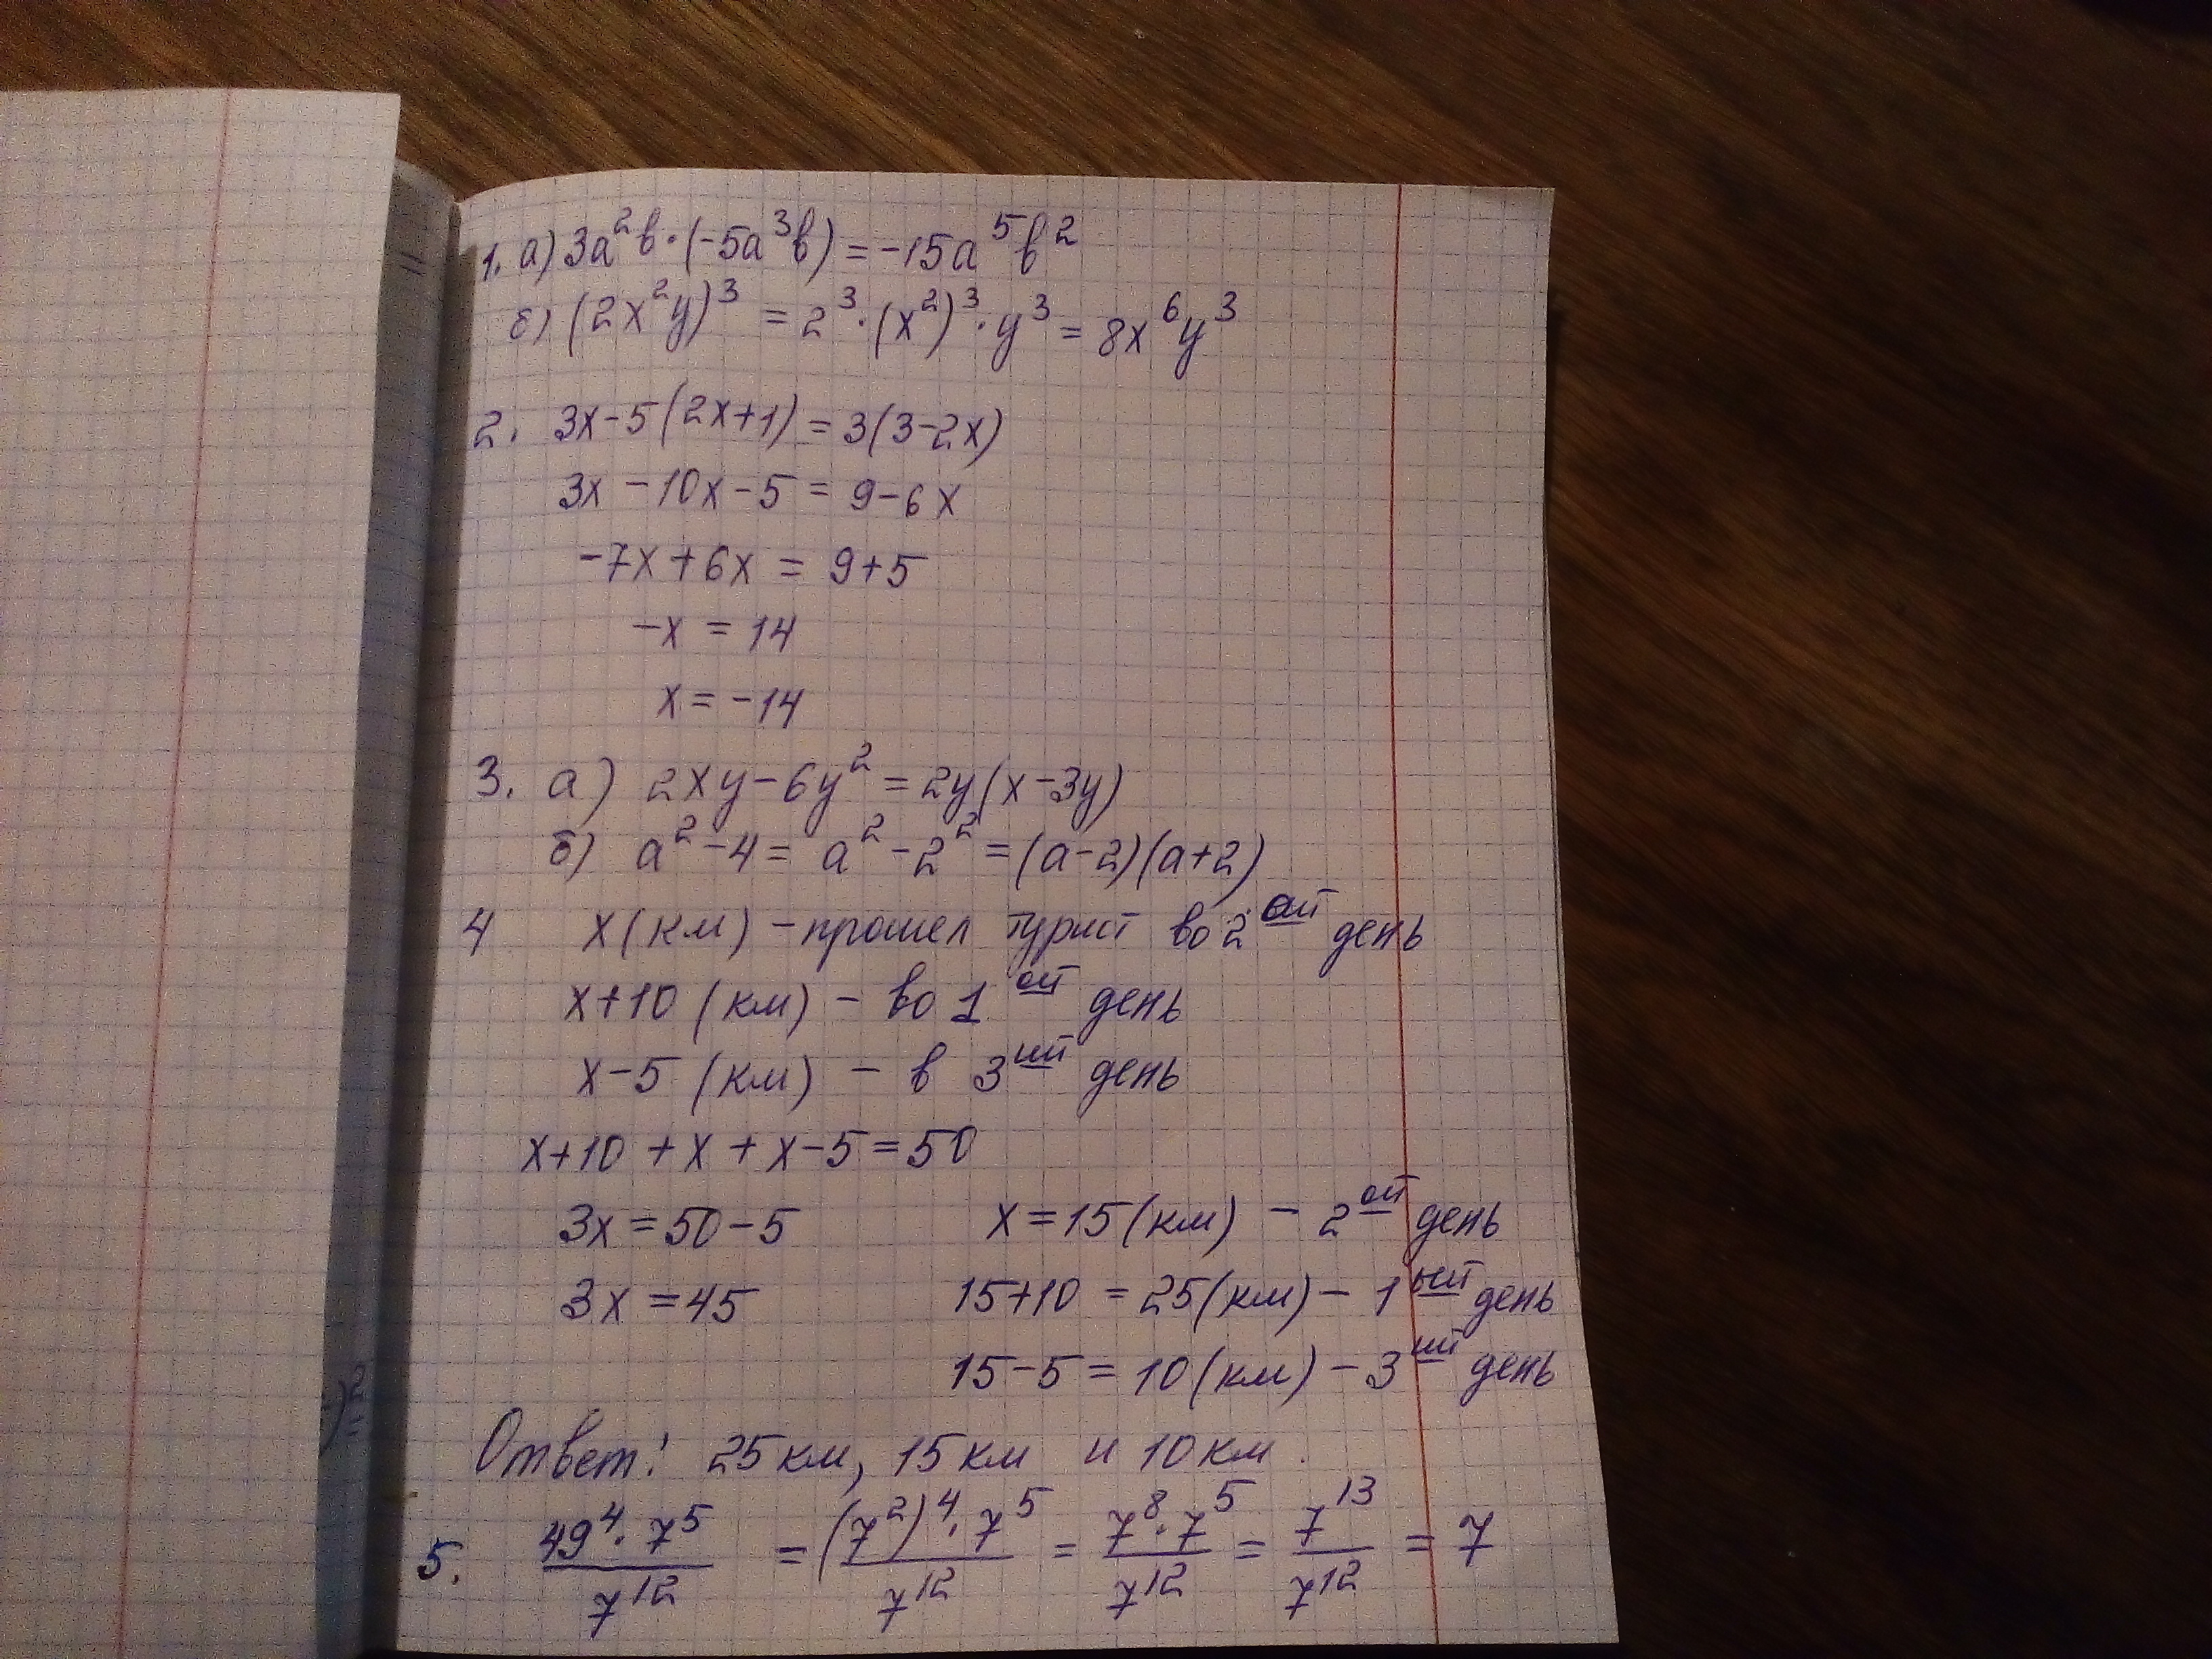 1. а) 3a²b·(-5a³b) = -15a⁵b²
б) (2x²y)³ = 2³·(x²)³·y³ = 8x⁶y³
2. 3x-5(2x+1) = 3(3-2x)
3x-10x-5 = 9-6x
-7x+6x = 9+5
-x = 14
x = -14
3. а) 2xy-6y² = 2y(x-3y)
б) a²-4 = a²-2² = (a-2)(a+2)
4 x(км) - прошел турист во 2ой день
x+10 (км) - во 1ой день
x-5 (км) - в 3ий день
x+10 + x + x-5 = 50
3x = 50-5 x = 15(км) - 2ой день
3x = 45 15+10 = 25(км) - 1ый день
15-5 = 10(км) - 3ий день
Ответ: 25км, 15км и 10км.
5. 49⁴·7⁵/7¹² = (7²)⁴·7⁵/7¹² = 7⁸·7⁵/7¹² = 7¹³/7¹² = 7